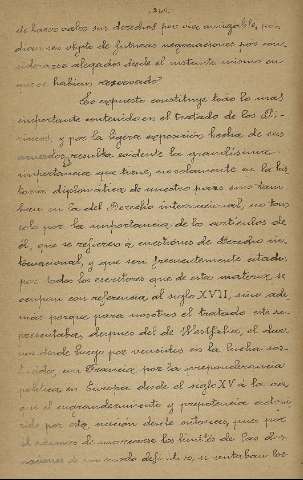 de hacer valer sus derechos por vía amigable, po-
drían ser objeto de futuras negociaciones por con-
siderarse alegados desde el instante mismo en
que se habían reservado.
Lo expuesto constituye todo lo mas
importante contenido en el tratado de los Pi-
rineos, y por la ligera exposición hecha de sus
acuerdos, resulta evidente la grandísima
importancia que tiene, no solamente en la his-
toria diplomática de nuestro país sino tam-
bien en la del Derecho internacional, no tan
solo por la importancia de los artículos de
él, que se refieren á cuestiones de Derecho in-
ternacional, y que son frecuentemente citados
por todos los escritores que de esta materia se
ocupan con referencia al siglo XVII, sino ade-
más porque para nosotros el tratado este re-
presentaba, despues del de Westfalia, el
desde luego por vencidos en la lucha sos-
tenida con Francia por la preponderancia
política en Europa desde el siglo XV á la vez
que el engrandecimiento y prepotencia adqui-
rido por esta nación desde entonces, pues por
el mismo de marcarse los límites de las dos
naciones de un modo definitivo, se sentaban los